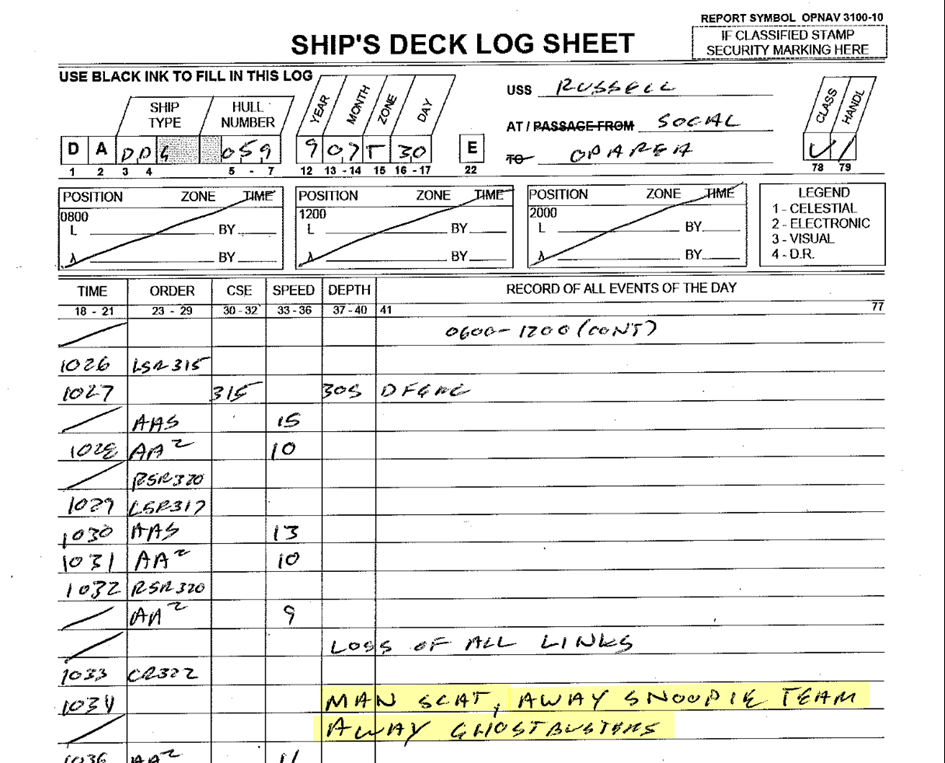 REPORT SYMBOL OPNAV 3100-10
IF CLASSIFIED STAMP
SECURITY MARKING HERE
SHIP'S DECK LOG SHEET
USE BLACK INK TO FILL IN THIS LOG
USS RUSSELL
AT / PASSAGE FROM SOCAL
TO OPAREA
SHIP TYPE HULL NUMBER YEAR MONTH ZONE DAY CLASS HANDL
D A D D G 059 9 07 T 30 E U /
1 2 3 4 5 - 7 12 13 - 14 15 16 - 17 22 78 79
POSITION ZONE TIME POSITION ZONE TIME POSITION ZONE TIME LEGEND
0800 1200 2000 1 - CELESTIAL
L BY L BY L BY 2 - ELECTRONIC
3 - VISUAL
λ BY λ BY λ BY 4 - D.R.
TIME ORDER CSE SPEED DEPTH RECORD OF ALL EVENTS OF THE DAY
18 - 21 23 - 29 30 - 32 33-36 37 - 40 41 77
0600-1200 (CONT)
1026 LSR315
1027 315 305
AAS 15
1028 AA2 10
RSR320
1029 LSR317
1030 AAS 13
1031 AA2 10
1032 RSR320
AA2 9
LOSS OF ALL LINKS
1033 CR322
1034 MAN SCAT, AWAY SNOOPIE TEAM
AWAY GHOSTBUSTERS
1036 AA2 11